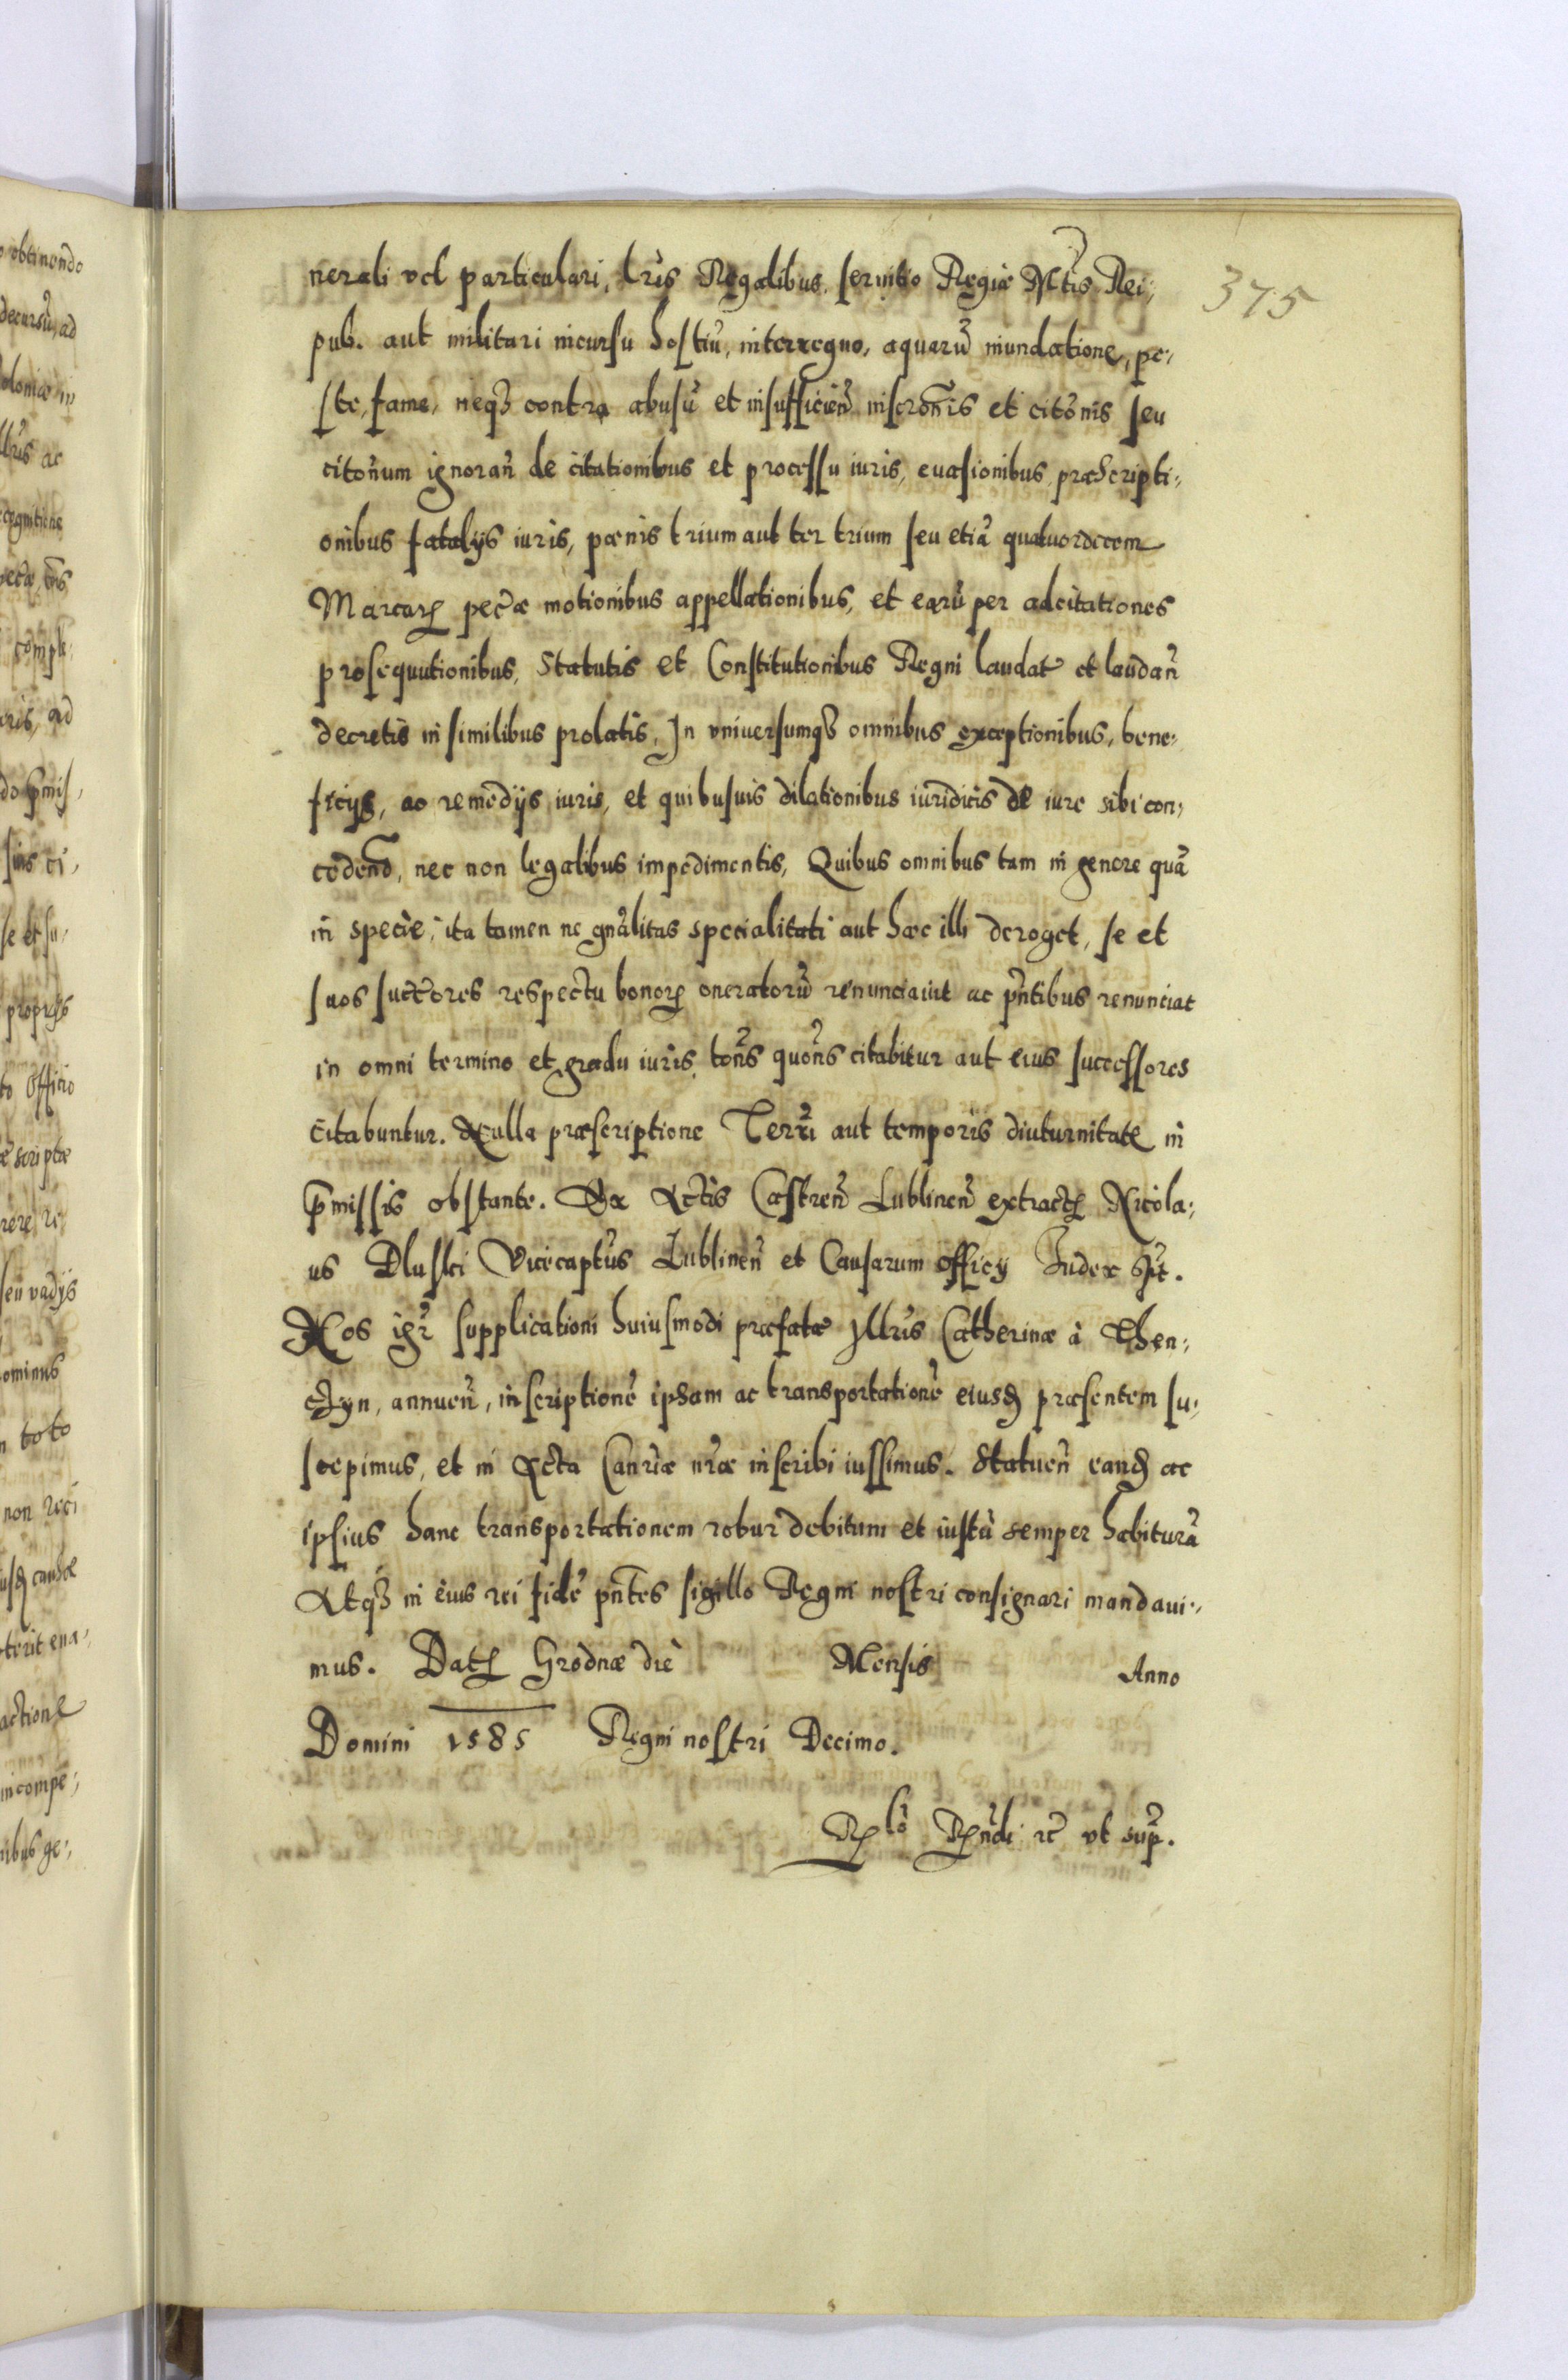 375
nerali vel particulari, lr̃is Regalibus, seruitio Regiæ Mt̃is Rei,
pub. aut militari incursu hostiũ, interregno, aquarũ inundatione, pe,
ste, fame, neqꝫ contra abusũ et insufficieñ inscroñis et citõnis seu
citoñum ignorañ de citationibus et processu iuris, euasionibus, præscripti,
onibus fatalijs iuris, pænis trium aut ter trium seu etiã quatuordecem
Marcarꝝ pec̃æ motionibus appellationibus, et earũ per adcitationes
prosequutionibus, Statutis et Constitutionibus Regni laudat̃ et laudañ
decretis in similibus prolatis, In vniuersumqꝫ omnibus exceptionibus, bene,
ficijs, ac remedijs iuris, et quibusuis dilationibus iuridicis de iure sibi con,
cedend̃, nec non legalibus impedimentis, Quibus omnibus tam in genere quã
in specie, ita tamen ne gñalitas specialitati aut hæc illi deroget, se et
suos succ̃ores respectu bonorꝝ oneratorũ renunciauit ac pñtibus renunciat
in omni termino et gradu iuris, tõns quõns citabitur aut eius successores
citabuntur. Nulla præscriptione Terr̃i aut temporis diuturnitate in
p̃missis obstante. Ex Actis Castreñ Lublineñ extractꝫ Nicola,
us Dluski Vicecapt̃us Lublineñ et Causarum officij Iudex sst̃.
Nos igr̃ supplicationi huiusmodi præfatæ Illr̃is Catherinæ à Then,
czyn, annueñ, inscriptionẽ ipsam ac transportationẽ eiusd̃ præsentem su,
scepimus, et in Acta Canr̃iæ nr̃æ inscribi iussimus. Statueñ eand̃ ac
ipsius hanc transportationem robur debitum et iustũ semper habiturã
Atqꝫ in eius rei fidẽ pñtes sigillo Regni nostri consignari mandaui,
mus. Datꝫ Grodnæ die Mensis Anno
Domini 1585 Regni nostri Decimo.
Rꝫlõ Rꝫñdi ꝛc̃ vt sup̃.